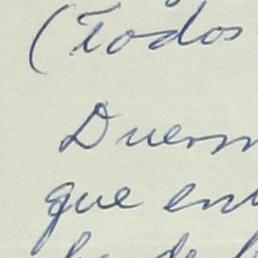 (Todos
Duerm
que ent